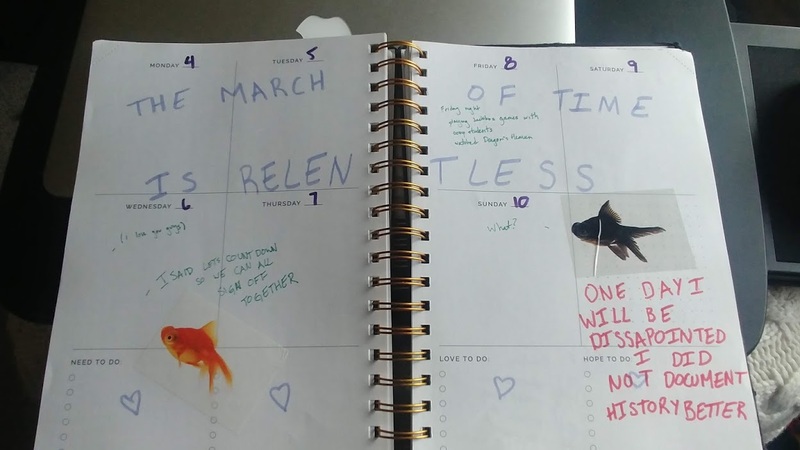 MONDAY 4
TUESDAY 5
FRIDAY 8
SATURDAY 9
THE MARCH OF TIME
Friday night
playing games with
students
watched
IS RELENTLESS
WEDNESDAY 6
THURSDAY 7
SUNDAY 10
(i love you guys)
I SAID LET'S COUNT DOWN
SO WE CAN ALL
SIGN OFF
TOGETHER
What?
ONE DAY I
WILL BE
DISSAPOINTED
I DID
NOT DOCUMENT
HISTORY BETTER
NEED TO DO:
LOVE TO DO:
HOPE TO DO: